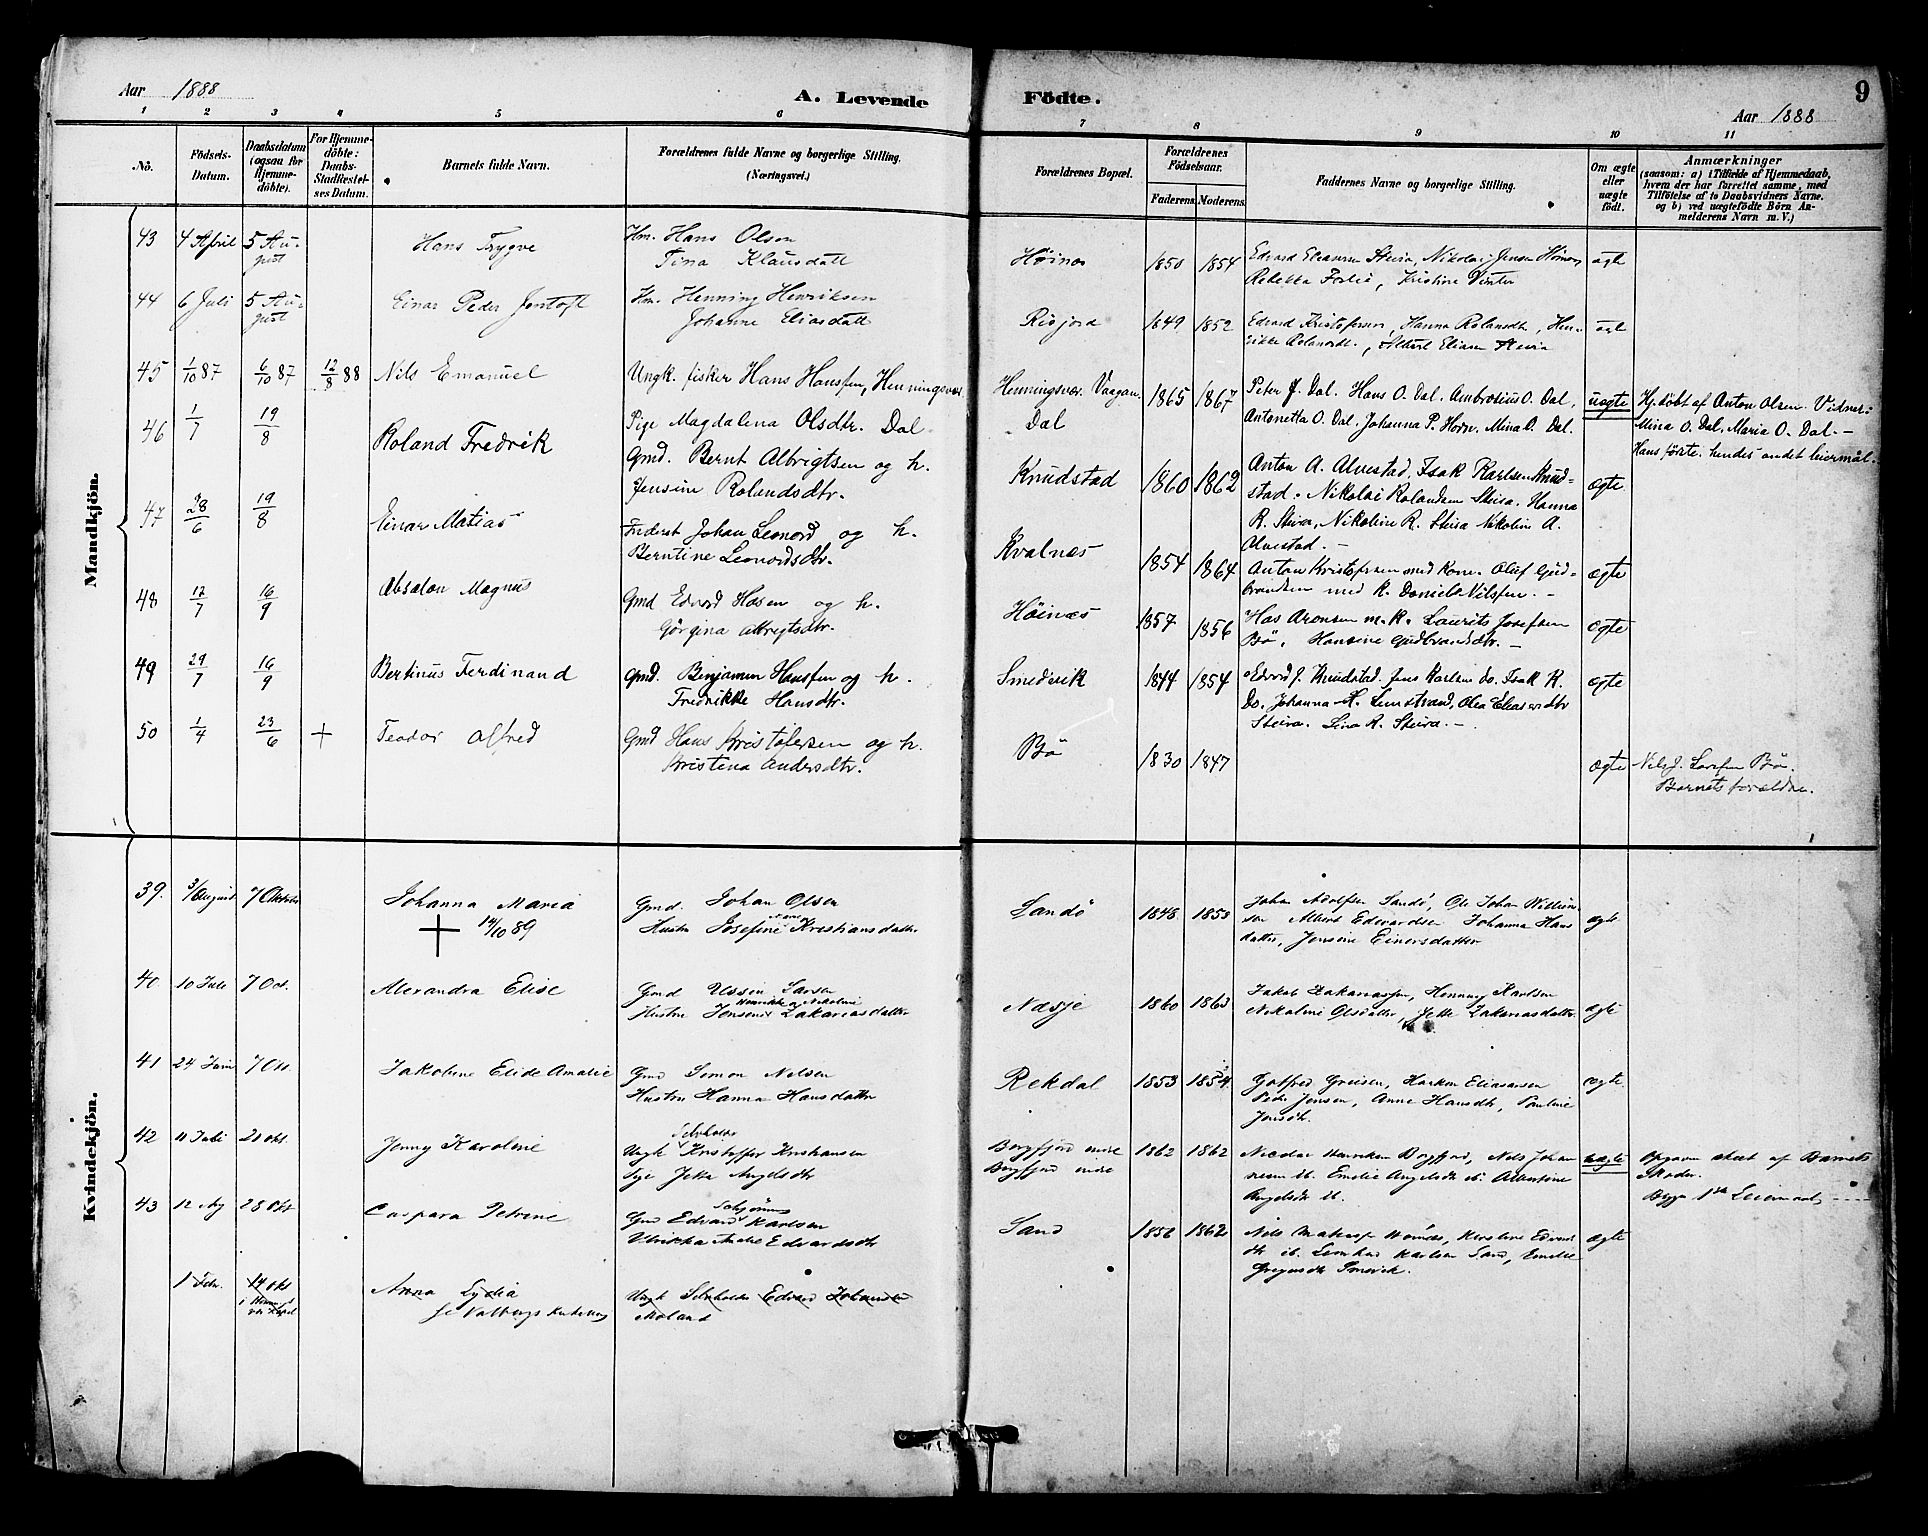 Aar 1888
A. Levende Födte.
9
Aar 1888
1 2 3 4 5 6 7 8 9 10 11
No. Födsels-Datum. Daabsdatum (ogsaa for Hjemme-döbte). For Hjemme-döbte: Daabs-Stadfæstelses Datum. Barnets fulde Navn. Forældrenes fulde Navne og borgerlige Stilling. (Næringsvei.) Forældrenes Bopæl. Forældrenes Födselsaar. Faderens. Moderens. Faddernes Navne og borgerlige Stilling. Om ægte eller uægte födt. Anmærkninger (saasom: a) i Tilfælde af Hjemmedaab, hvem der har forrettet samme, med Tilföielse af to Daabsvidners Navne, og b) ved uægtefödte Börn Anmelderens Navn m. V.)
Mandkjön.
43 4 April 5 August Hans Trygve Hm. Hans Olsen
Tina Klausdatt Höinæs 1850 1854 Edvard Eliassen Steira, Nikolai Jensen Höinæs
Rebekka Forlie, Kristine Vinter ægte
44 6 Juli 5 August Einar Peder Jentoft Hm. Henning Henriksen
Johanne Eliasdatt Risjord 1849 1852 Edvard Kristofersen, Hanna Rolandsdt, Hen-
rikke Rolandsdt., Albert Eliasen Steira ægte
45 1/10 87 6/10 87 12/8 88 Nils Emanuel Ungk. fisker Hans Hansen, Henningsvær
Pige Magdalena Olsdtr. Dal Henningsvær. Vaagan.
Dal 1865 1867 Peter J. Dal. Hans O. Dal. Ambrosius O. Dal.
Antonetta O. Dal. Johanna P. Horn. Mina O. Dal. uægte Hj. döbt af Anton Olsen. Vidner:
Mina O. Dal, Maria O. Dal. -
Hans förste. hendes andet leiermål.
46 1/7 19/8 Roland Fredrik Gmd. Bernt Albrigtsen og h.
Jensine Rolandsdtr. Knudstad 1860 1862 Anton A. Alvestad, Isak Karlsen Knud-
stad. Nikolai Rolandsen Steira. Hanna
R. Steira, Nikoline R. Steira Nikolin A.
Alvestad. - ægte
47 28/6 19/8 Einar Matias Inderst Johan Leonord og h.
Berntine Leonordsdtr. Kvalnæs 1854 1864 Anton Kristofersen med Kone. Oluf Gud-
brandsen med K. Daniel Nilssen. - ægte
48 12/7 16/9 Absalon Magnus Gmd Edvard Hasen og h.
Görgina Albrigtsdtr. Höinæs 1857 1856 Has Aronsen m. K. Laurits Josefsen
Bö, Hansine Gudbrandsdtr. - ægte
49 29/7 16/9 Bertinus Ferdinand Gmd. Benjamin Hanssen og h.
Fredrikke Hansdtr. Smedvik 1844 1854 Edvard J. Knudstad. Jens Karlsen do. Isak K.
Do. Johanna H. Lunstrand, Olea Eliasesdtr
Steira. Lina R. Steira. - ægte
50 1/4 23/6 + Teodor Alfred Gmd Hans Kristofersen og h.
Kristena Andersdtr. Bö 1830 1847 ægte Nils J. Larssen Bö.
Barnets forældre.
Kvindekjön.
39. 3/August 7 Oktober Johanna Maria
14/10 89 Gmd. Johan Olsen
Hustru Josefine Kristiansdatter Sandö 1848 1850 Johan Adolfsen Sandö, Ole Johan Willum-
sen Albert Edvardsen Johanna Hans
datter, Jensine Einersdatter ægte
40. 10 Juli 7 Oct. Alexandra Elise Gmd Ussin Larsen
Henrikke Nikoline
Hustru Jensen Zakariasdatter Næsje 1860 1863 Jakob Zakariassen, Henning Karlsen
Nikoline Olsdatter, Jette Zakariasdatter ægte
41 24 Juni 7 Okt. Jakobine Elide Amalie Gmd Simon Nilsen
Hustru Hanna Hansdatter Rekdal 1853 1854 Gotfred Greisen, Harken Eliasasen
Peder Jensen, Anne Hansdtr, Pauline
Jensdtr. ægte
42 11 Juli 21 Okt. Jenny Karoline Selvholder
Ungk Kristoffer Kristiansen
Pige Jetta Angelsdtr Borgfjord indre
Borgfjord indre 1862 1862 Nicolai Henriksen Borgfjord, Nils Johan
nesen ib. Emilie Angelsdtr ib. Albertine
Angelsdtr ib. uægte Opgaven skeet af Barnets
Moder.
Begges 1ste Leiermaal
43 12 Aug 28 Okt Caspara Petrine Gmd Edvard Karlsen
Ulrikka Andrea Edvardsdtr Sand 1856 1862 Nils Höinæs, Karoline Edvards
dtr ib. Leonhard Karlsen Sand, Emilie
Gregusdtr Smevik. ægte
1 Febr. 14 Okt Anna Lydia
se Valbergs Kirkebog Ungk Selvholder Edvard Johansen
Moland